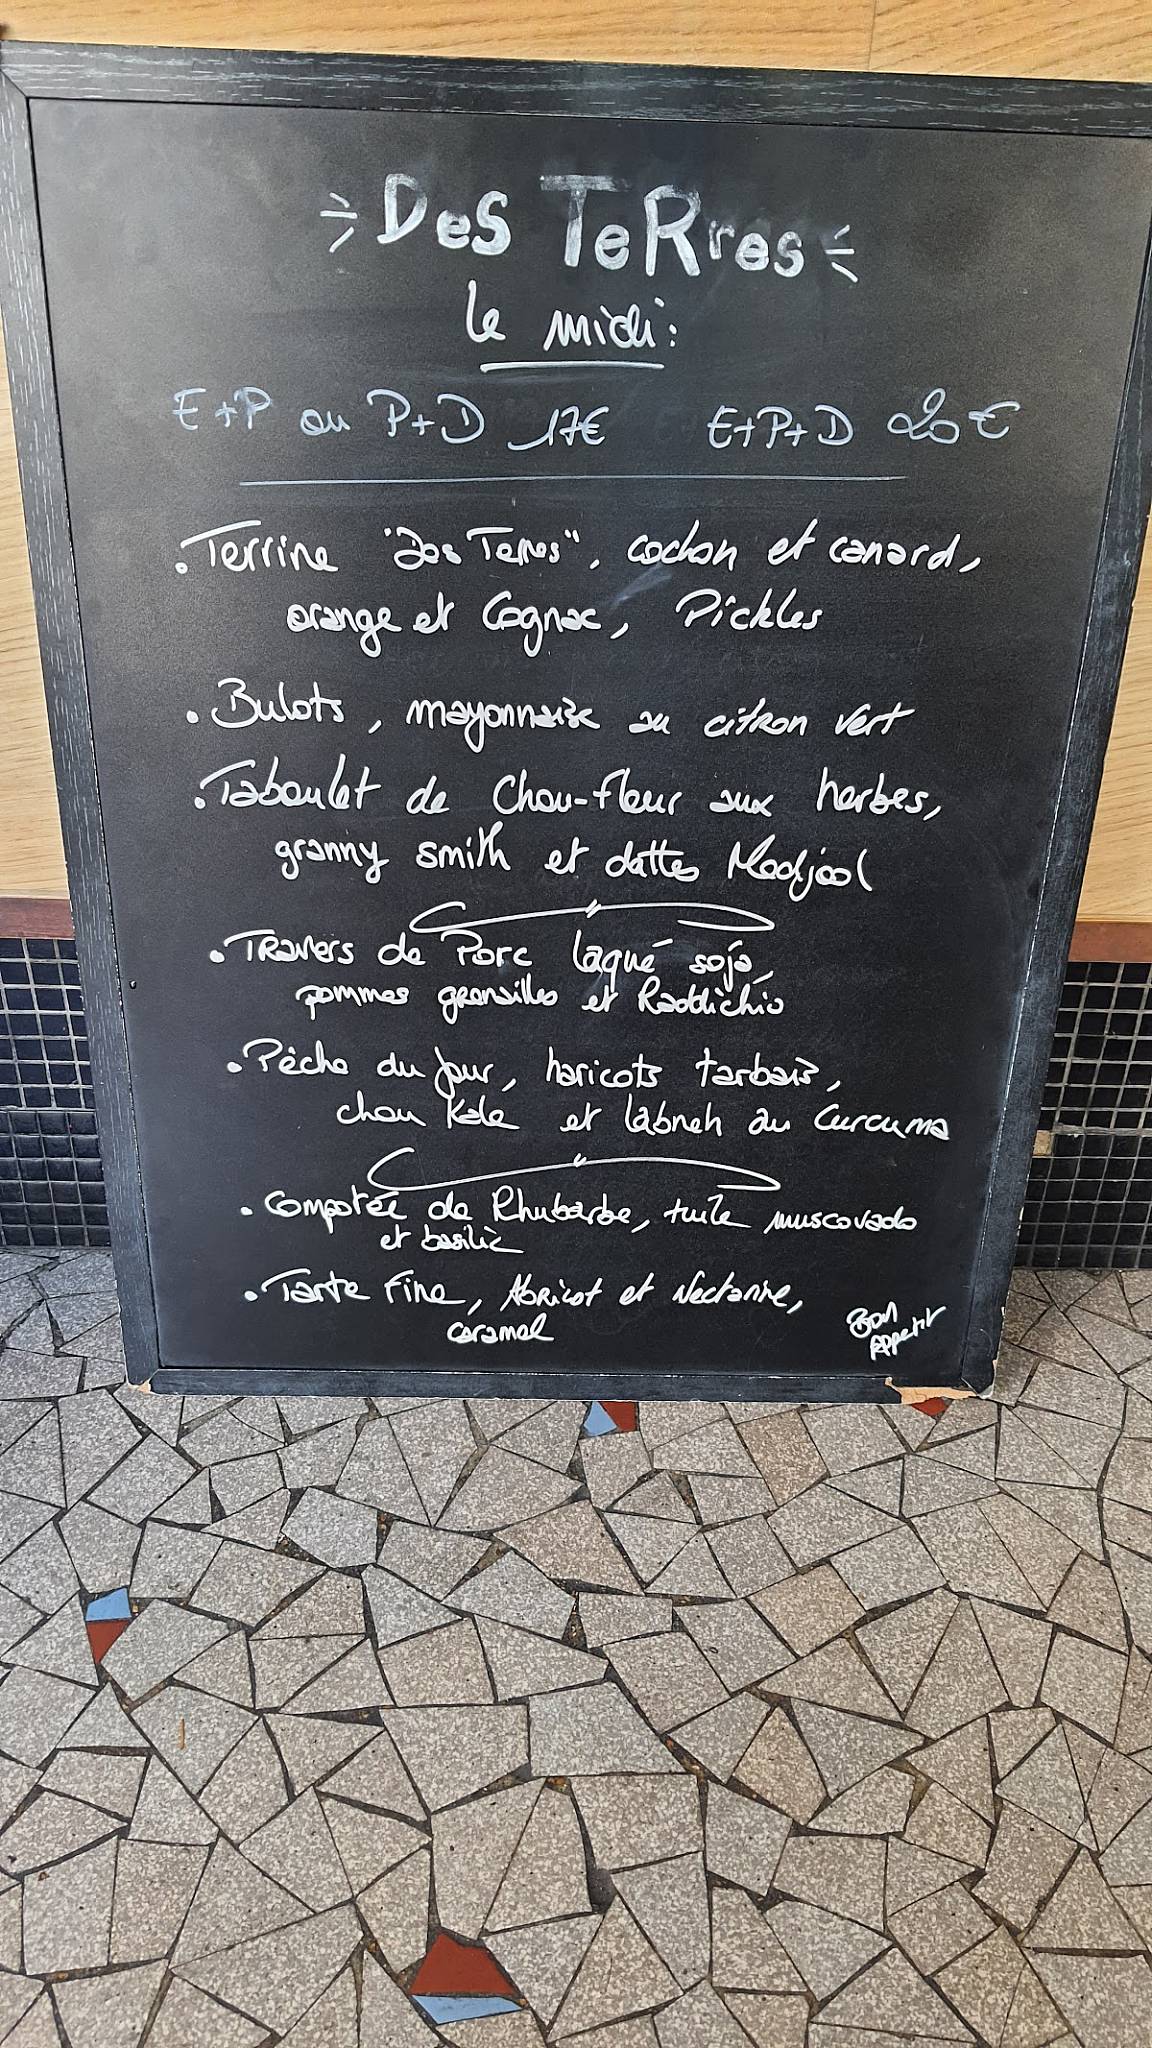 Des TeRres
le midi:
E+P ou P+D 17€ E+P+D 20€
• Terrine "Des Terres", cochon et canard,
orange et Cognac, Pickles
• Bulots, mayonnaise au citron vert
• Taboulet de Chou-fleur aux herbes,
granny smith et dattes Medjool
• Travers de Porc laqué soja,
pommes grenailles et Raddichio
• Pêche du jour, haricots tarbais,
chou Kale et labneh au Curcuma
• Compotée de Rhubarbe, tuile muscovado
et basilic
• Tarte Fine, Abricot et Nectarine,
caramel
Bon
Appetit